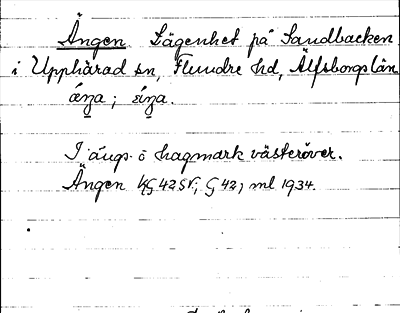 Ängen. Lägenhet på Sandbacken
i Upphärad sn, Flundre hd, Älfsborgs län
æŋa; 
I ängs- o hagmark västeröver.
Ängen 1934.